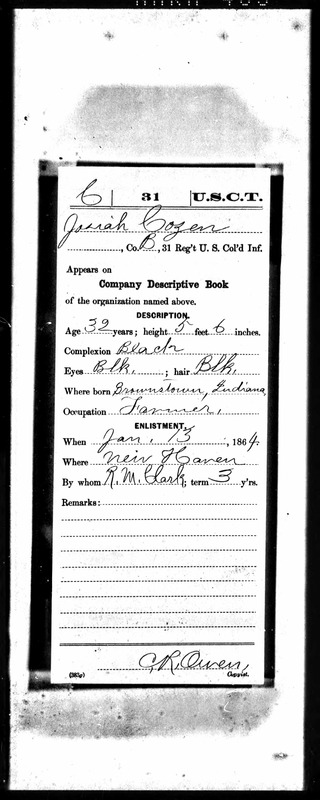 C | 31 | U.S.C.T.
Josiah Cozen
, Co. B, 31 Reg't U. S. Col'd Inf.
Appears on
Company Descriptive Book
of the organization named above.
DESCRIPTION.
Age 32 years; height 5 feet 6 inches.
Complexion Black
Eyes Blk. ; hair Blk.
Where born Brownstown, Indiana
Occupation Farmer.
ENLISTMENT.
When Jan. 13 , 1864.
Where New Haven
By whom R. M. Clark; term 3 y'rs.
Remarks:
C.R. Owen,
(383g) Copyist.